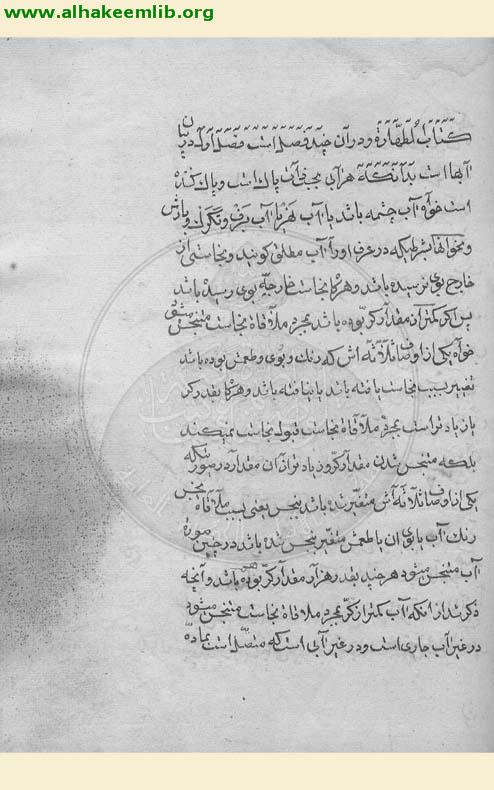 www.alhakeemlib.org
کتاب طهارة و در آن چند فصل است فصل اول در بیان
آبها است بدانکه هر آبی بحسب ذات پاک است و پاک کننده
است خواه آب چشمه باشد یا آب نهر یا آب برف و تگرگ و بارش
و نحو آنها بشرطیکه در عرف او را آب مطلق گویند و نجاستی از
خارج بوی نرسیده باشد و هرگاه نجاست خارجیه بوی رسیده باشد
پس اگر کمتر از مقدار کر بوده باشد بمجرد ملاقاة نجاست متنجس میشود
خواه یکی از اوصاف ثلاثه اش که رنگ و بوی و طعمش بوده باشد
تغییر بسبب نجاست یافته باشد یا نیافته باشد و هرگاه بقدر کر
یا زیاد تر است بمجرد ملاقاة نجاست قبول نجاست نمیکند
بلکه متنجس شدن مقدار کر و زیاد تر از آن مقدار در صورتیکه
یکی از اوصاف ثلاثه اش متغیر شده باشد بنجس یعنی بسبب ملاقاة نجس
رنگ آب یا بوی آن یا طعمش متغیر بنجس شده باشد در چنین صورة
آب متنجس میشود هر چند بقدر هزار مقدار کر بوده باشد و آنچه
ذکر شد از اینکه آب کمتر از کر بمجرد ملاقاة نجاست متنجس میشود
در غیر آب جاری است و در غیر آبی است که متصل است بماده